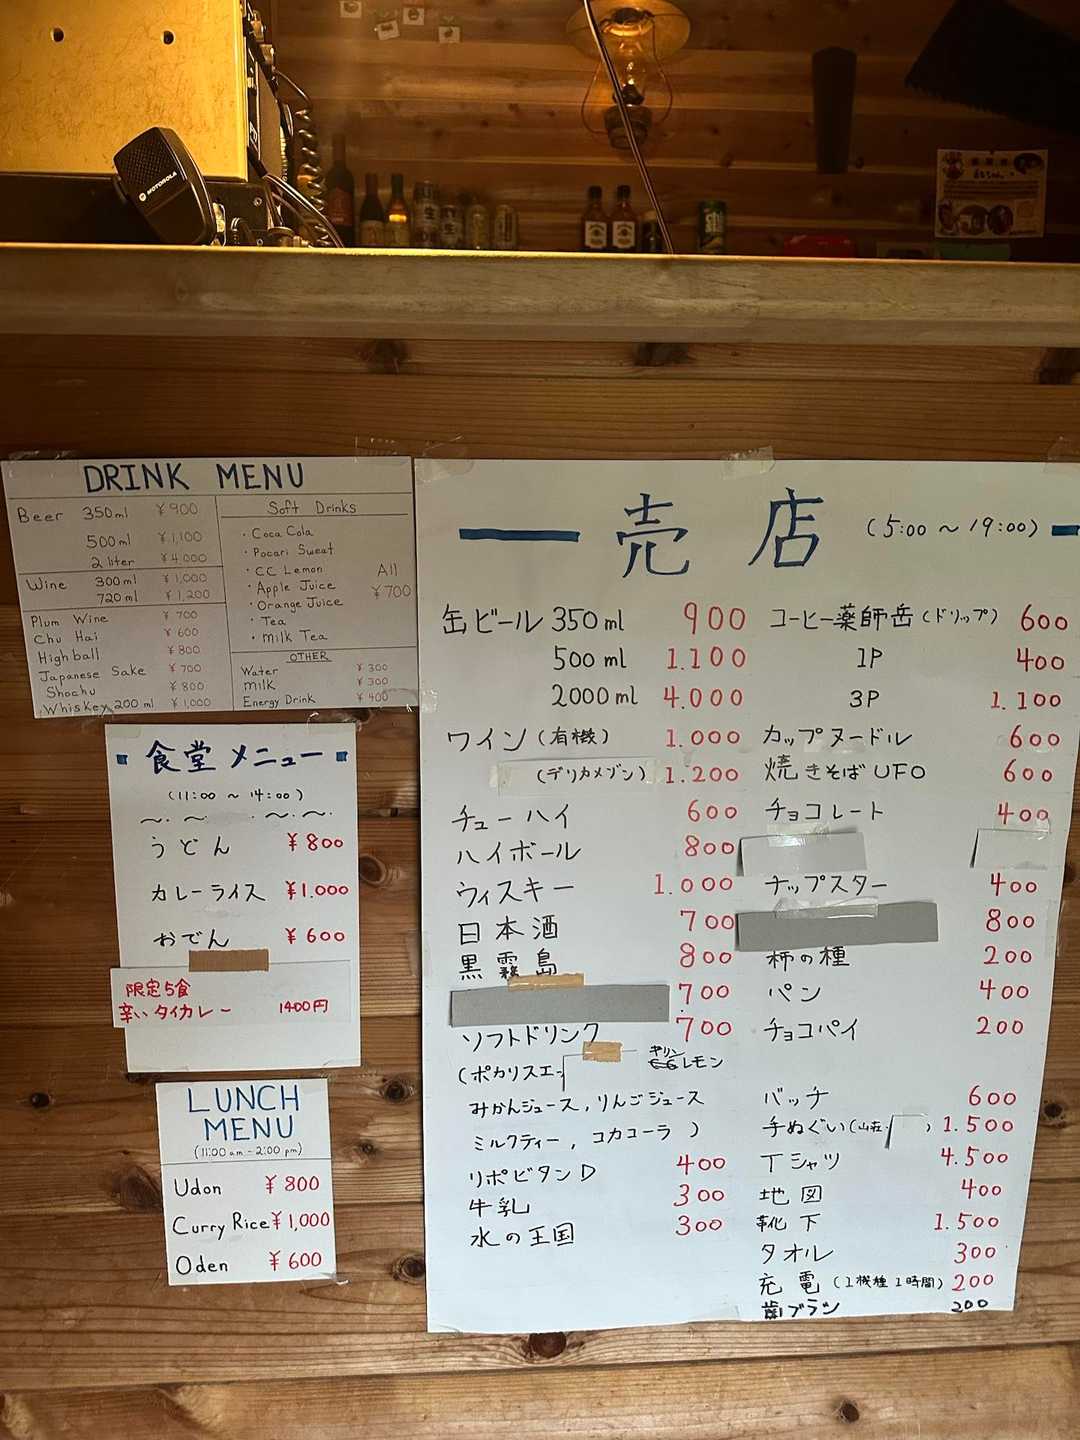 MOTOROLA
DRINK MENU
Beer 350ml ¥900
500ml ¥1,100
2 liter ¥4,000
Wine 300ml ¥1,000
720ml ¥1,200
Plum Wine ¥700
Chu Hai ¥600
Highball ¥800
Japanese Sake ¥700
Shochu ¥800
Whiskey 200ml ¥1,000
Soft Drinks
・Coca Cola
・Pocari Sweat
・CC Lemon
・Apple Juice
・Orange Juice
・Tea
・Milk Tea
All ¥700
OTHER
Water ¥300
milk ¥300
Energy Drink ¥400
食堂メニュー
(11:00 ～ 14:00)
うどん ¥800
カレーライス ¥1.000
おでん ¥600
限定5食
辛いタイカレー 1400円
LUNCH MENU
(11:00 am - 2:00 pm)
Udon ¥800
Curry Rice ¥1,000
Oden ¥600
売店 (5:00 ～ 19:00)
缶ビール 350ml 900
500ml 1.100
2000ml 4.000
ワイン(有機) 1.000
(デリカメゾン) 1.200
チューハイ 600
ハイボール 800
ウィスキー 1.000
日本酒 700
黒霧島 800
700
ソフトドリンク 700
(ポカリスエ
キリンレモン
みかんジュース, りんごジュース
ミルクティー, コカコーラ)
リポビタンD 400
牛乳 300
水の王国 300
コーヒー薬師岳(ドリップ) 600
1P 400
3P 1.100
カップヌードル 600
焼きそばUFO 600
チョコレート 400
チップスター 400
800
柿の種 200
パン 400
チョコパイ 200
バッチ 600
手ぬぐい(山荘・) 1.500
Tシャツ 4.500
地図 400
靴下 1.500
タオル 300
充電(1機種1時間) 200
歯ブラシ 200